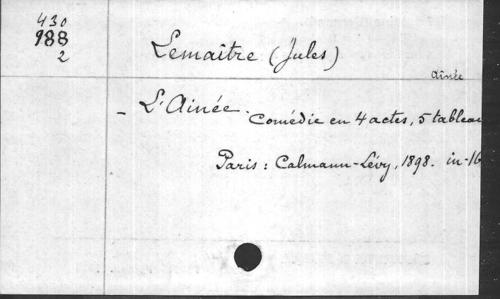 430
988
2
Lemaître (Jules)
aînée
- L'Ainée. Comédie en 4 actes, 5 tableau
Paris : Calmann-Lévy, 1898. in-16